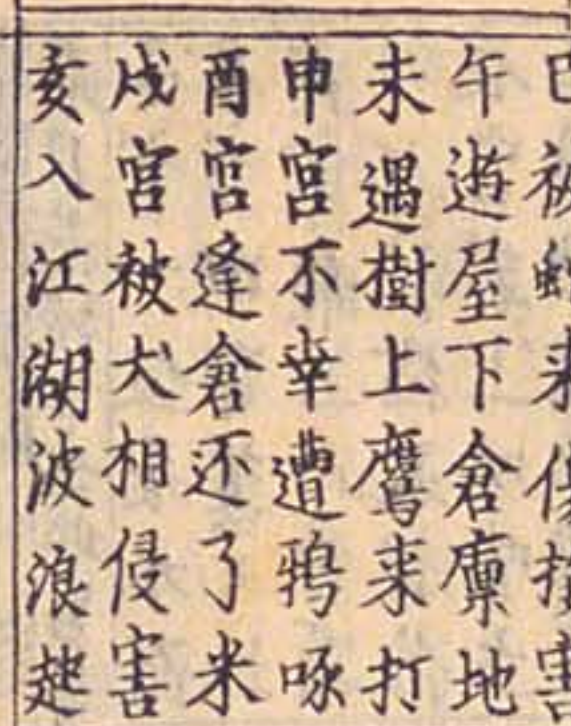 巳被蛇来傷害
午遊屋下倉廪地
未遇樹上鷹来打
申宫不幸遭鴉啄
酉宫逢倉还了米
戌宫被犬相侵害
亥入江湖波浪起